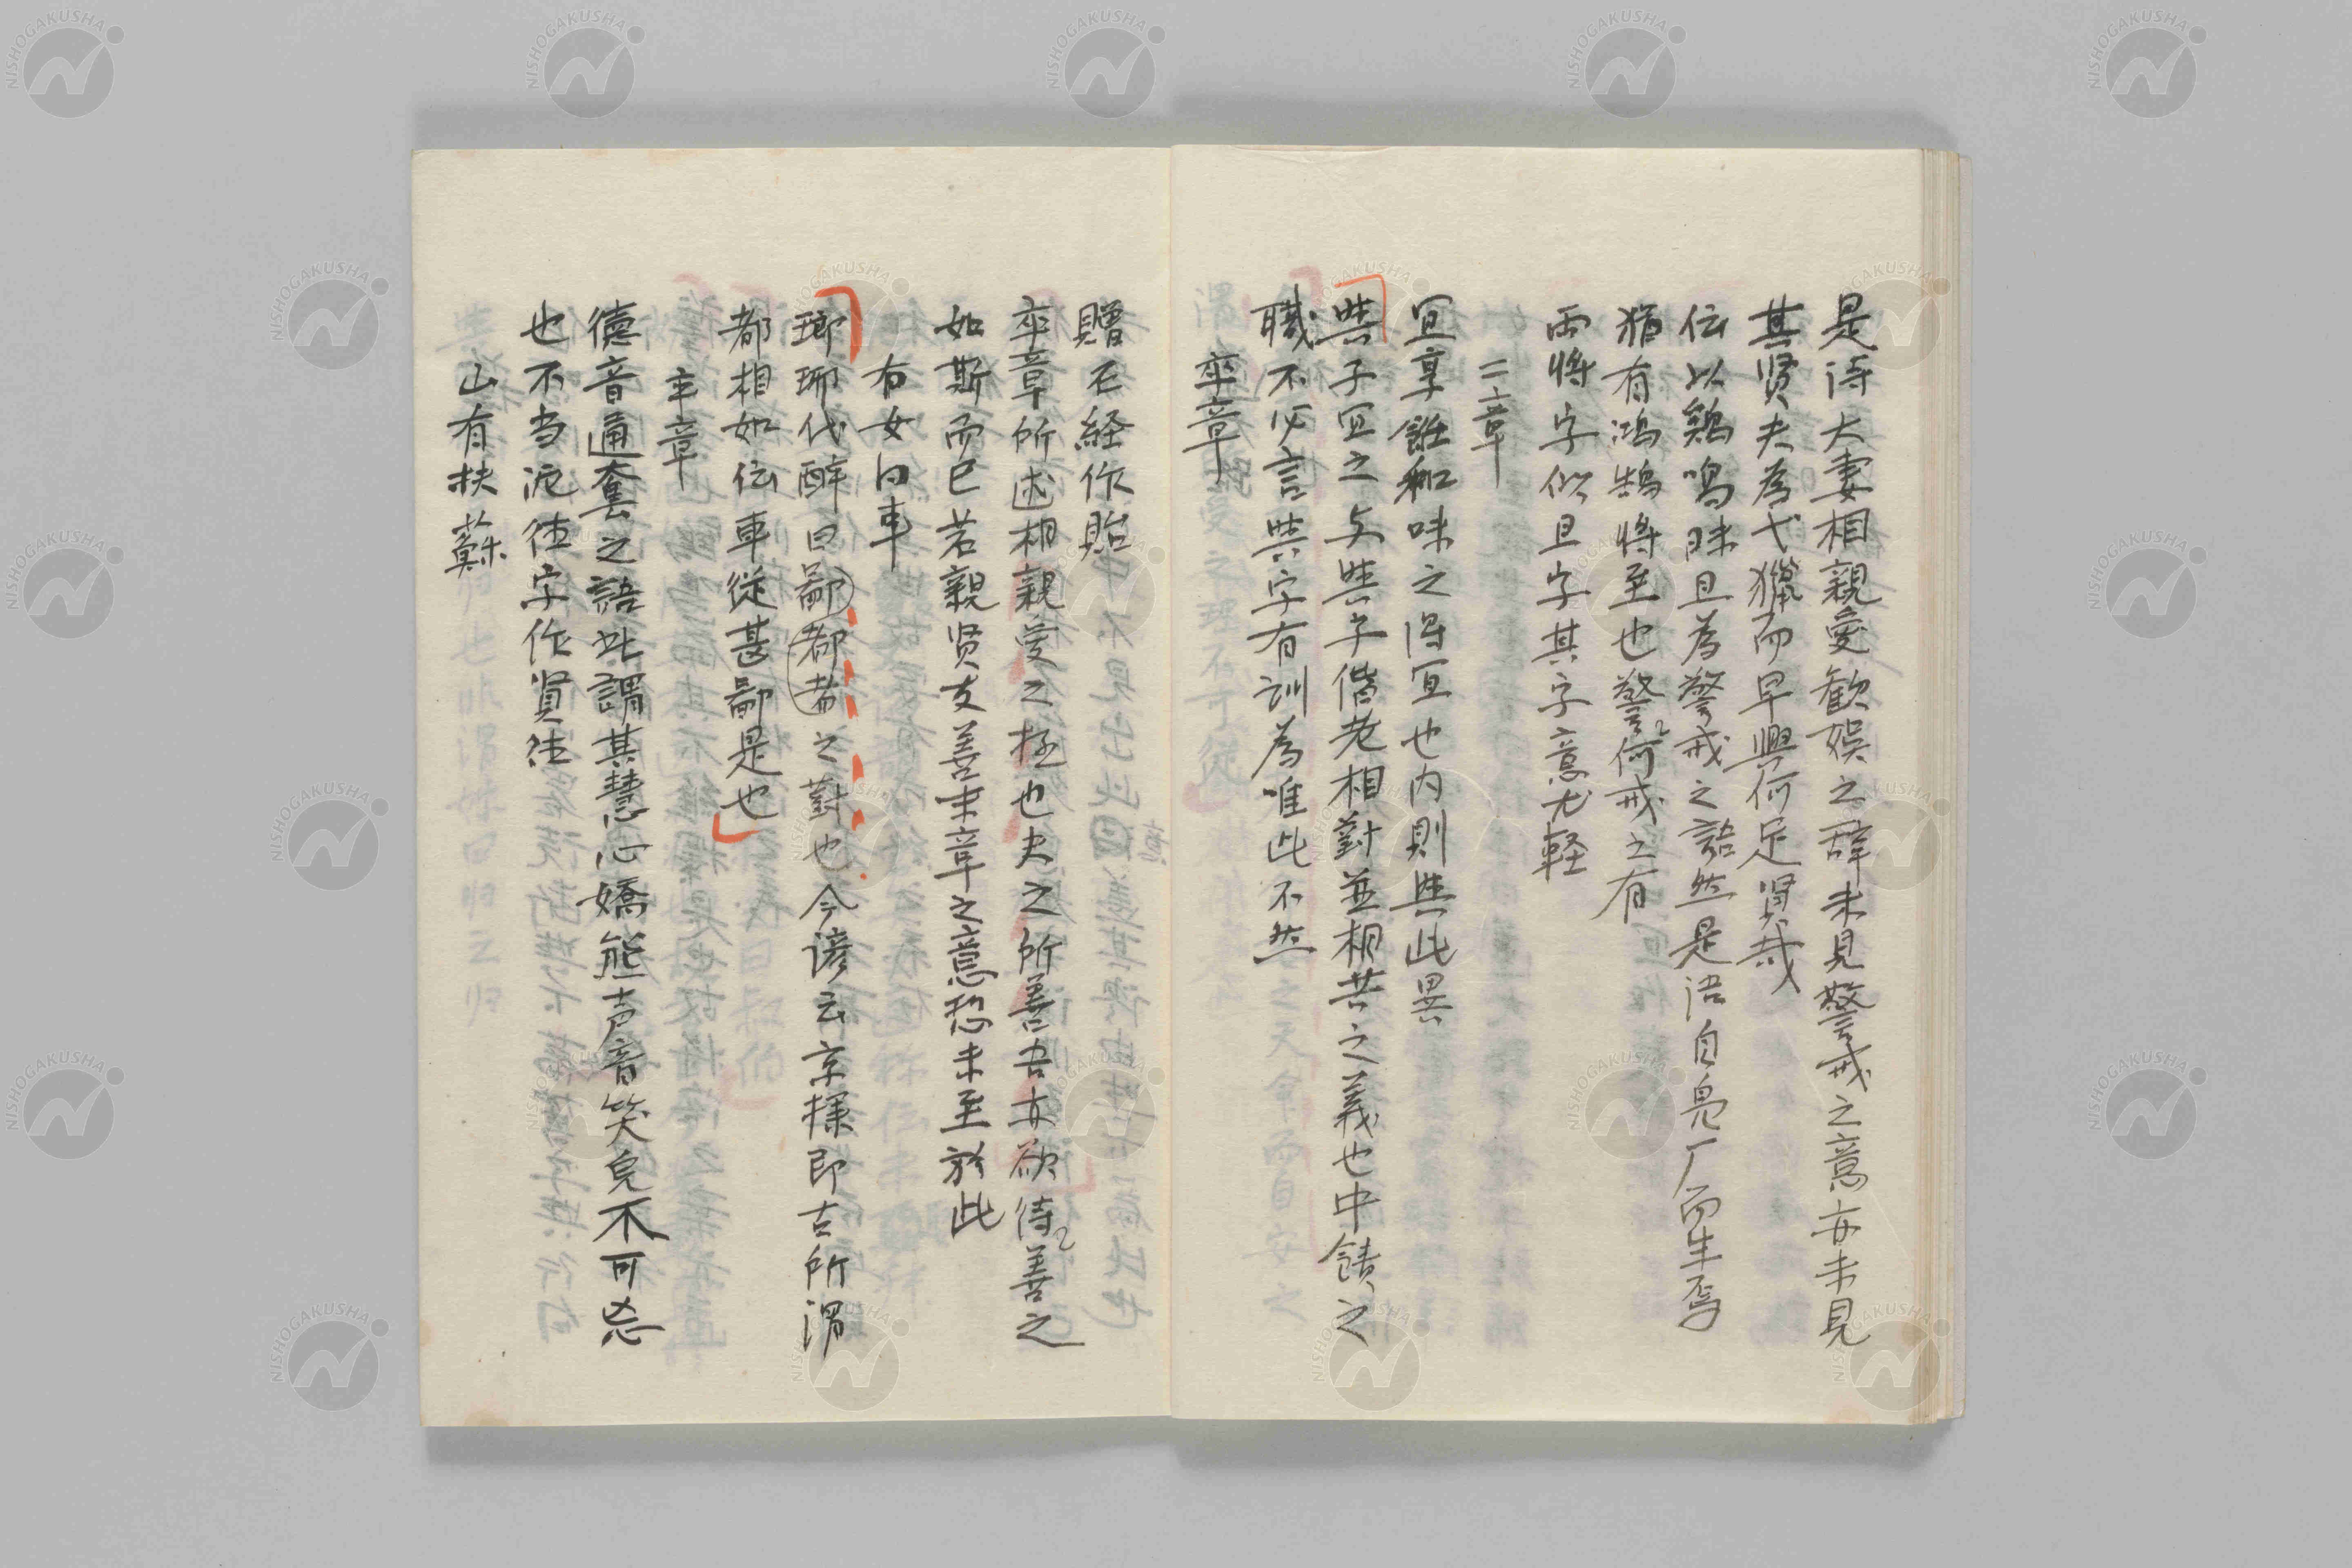 是詩夫妻相親愛歓娯之辞未見警戒之意亦未見
其賢夫為弋猟而早興何足賢哉
伝以鶏鳴昧旦為警戒之語然是语自鳧厂而生焉
猶有鴻鵠将至也警何戒之有
両将字似且字其字意尤軽
二章
宜享雖和味之得宜也内則与此異
与子宜之与与子偕老相對並相共之義也中饋之
職不必言与字有訓為唯此不然
卒章
贈石経作貽
卒章所述相親愛之極也夫之所善吾亦欲待善之
如斯而已若親賢友善末章之意恐未至於此
有女同車
瑯琊代酔曰鄙都者之對也今諺云京様即古所謂
都相如伝車従甚鄙是也
卒章
徳音通套之語此謂其慧心嬌態声音笑皃不可忘
也不当泥徳字作賢徳
山有扶蘇
NISHOGAKUSHA